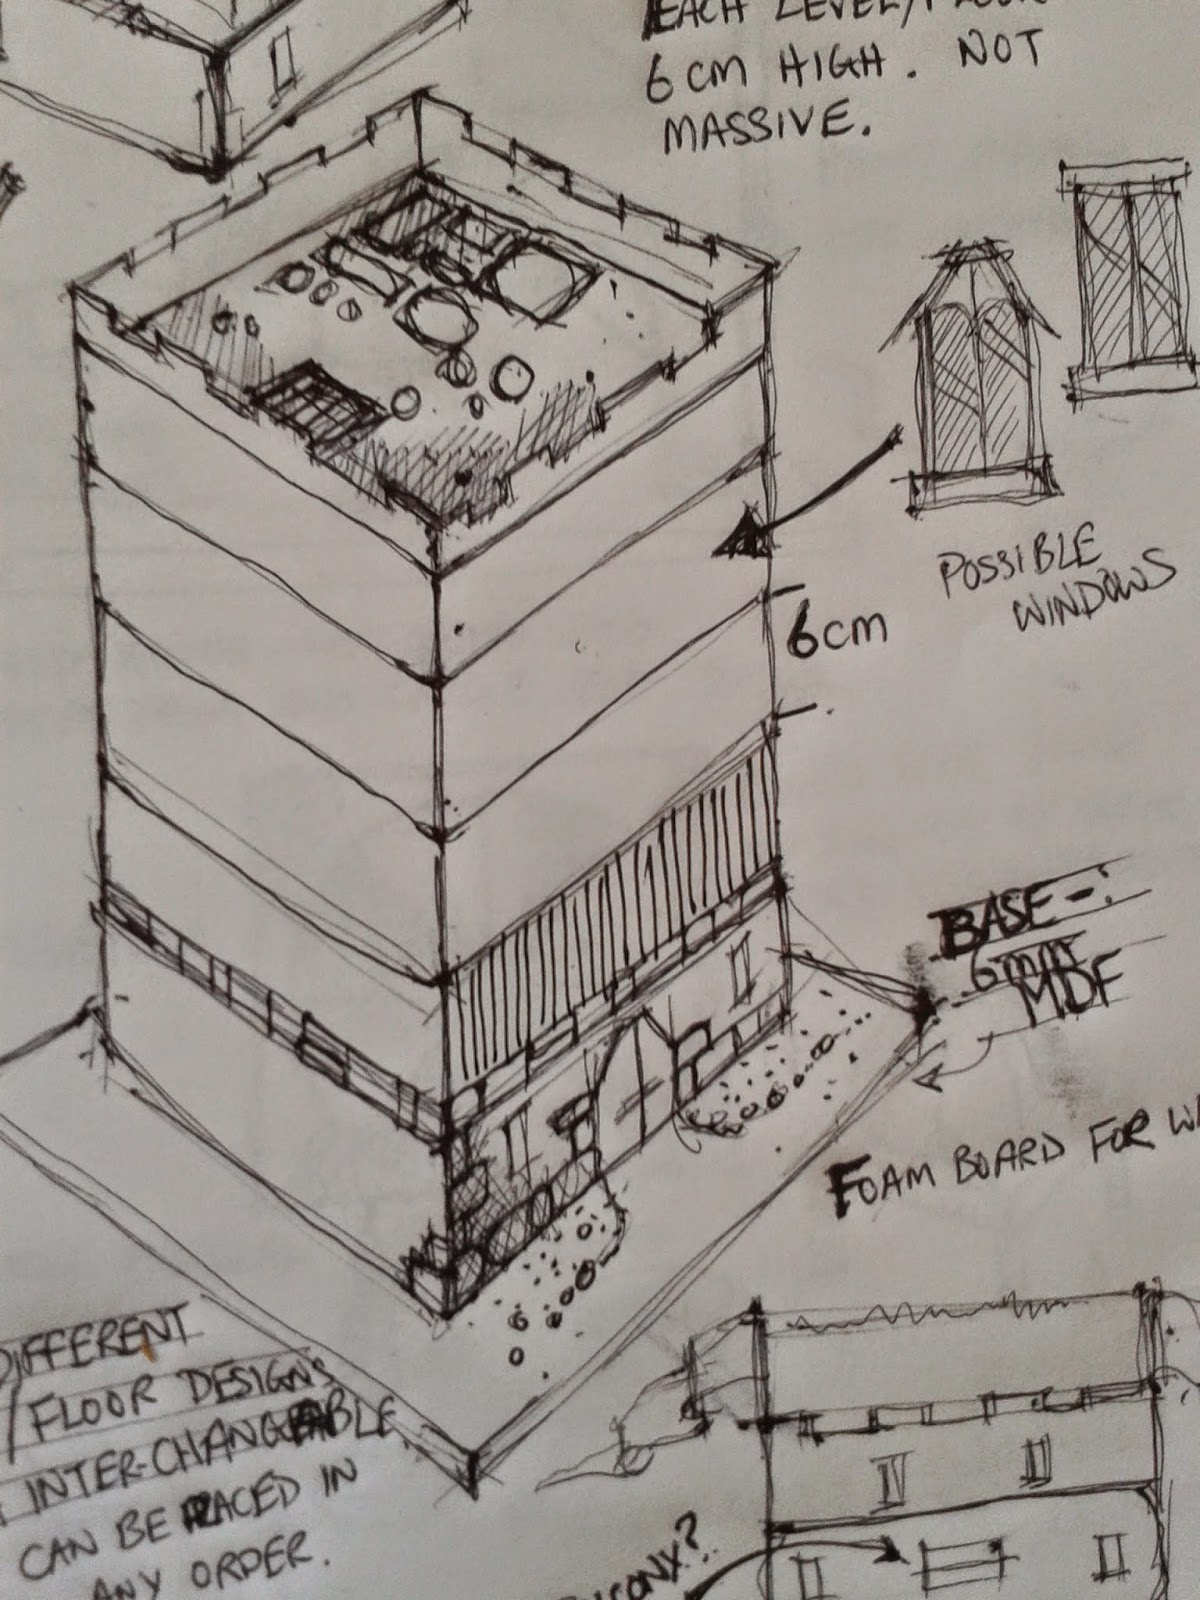 EACH LEVEL/FLOOR
6cm HIGH. NOT
MASSIVE.
POSSIBLE
WINDOWS
6cm
BASE-:
6mm
MDF
FOAM BOARD FOR
DIFFERENT
/FLOOR DESIGNS
INTER-CHANGEABLE
CAN BE PLACED IN
ANY ORDER.